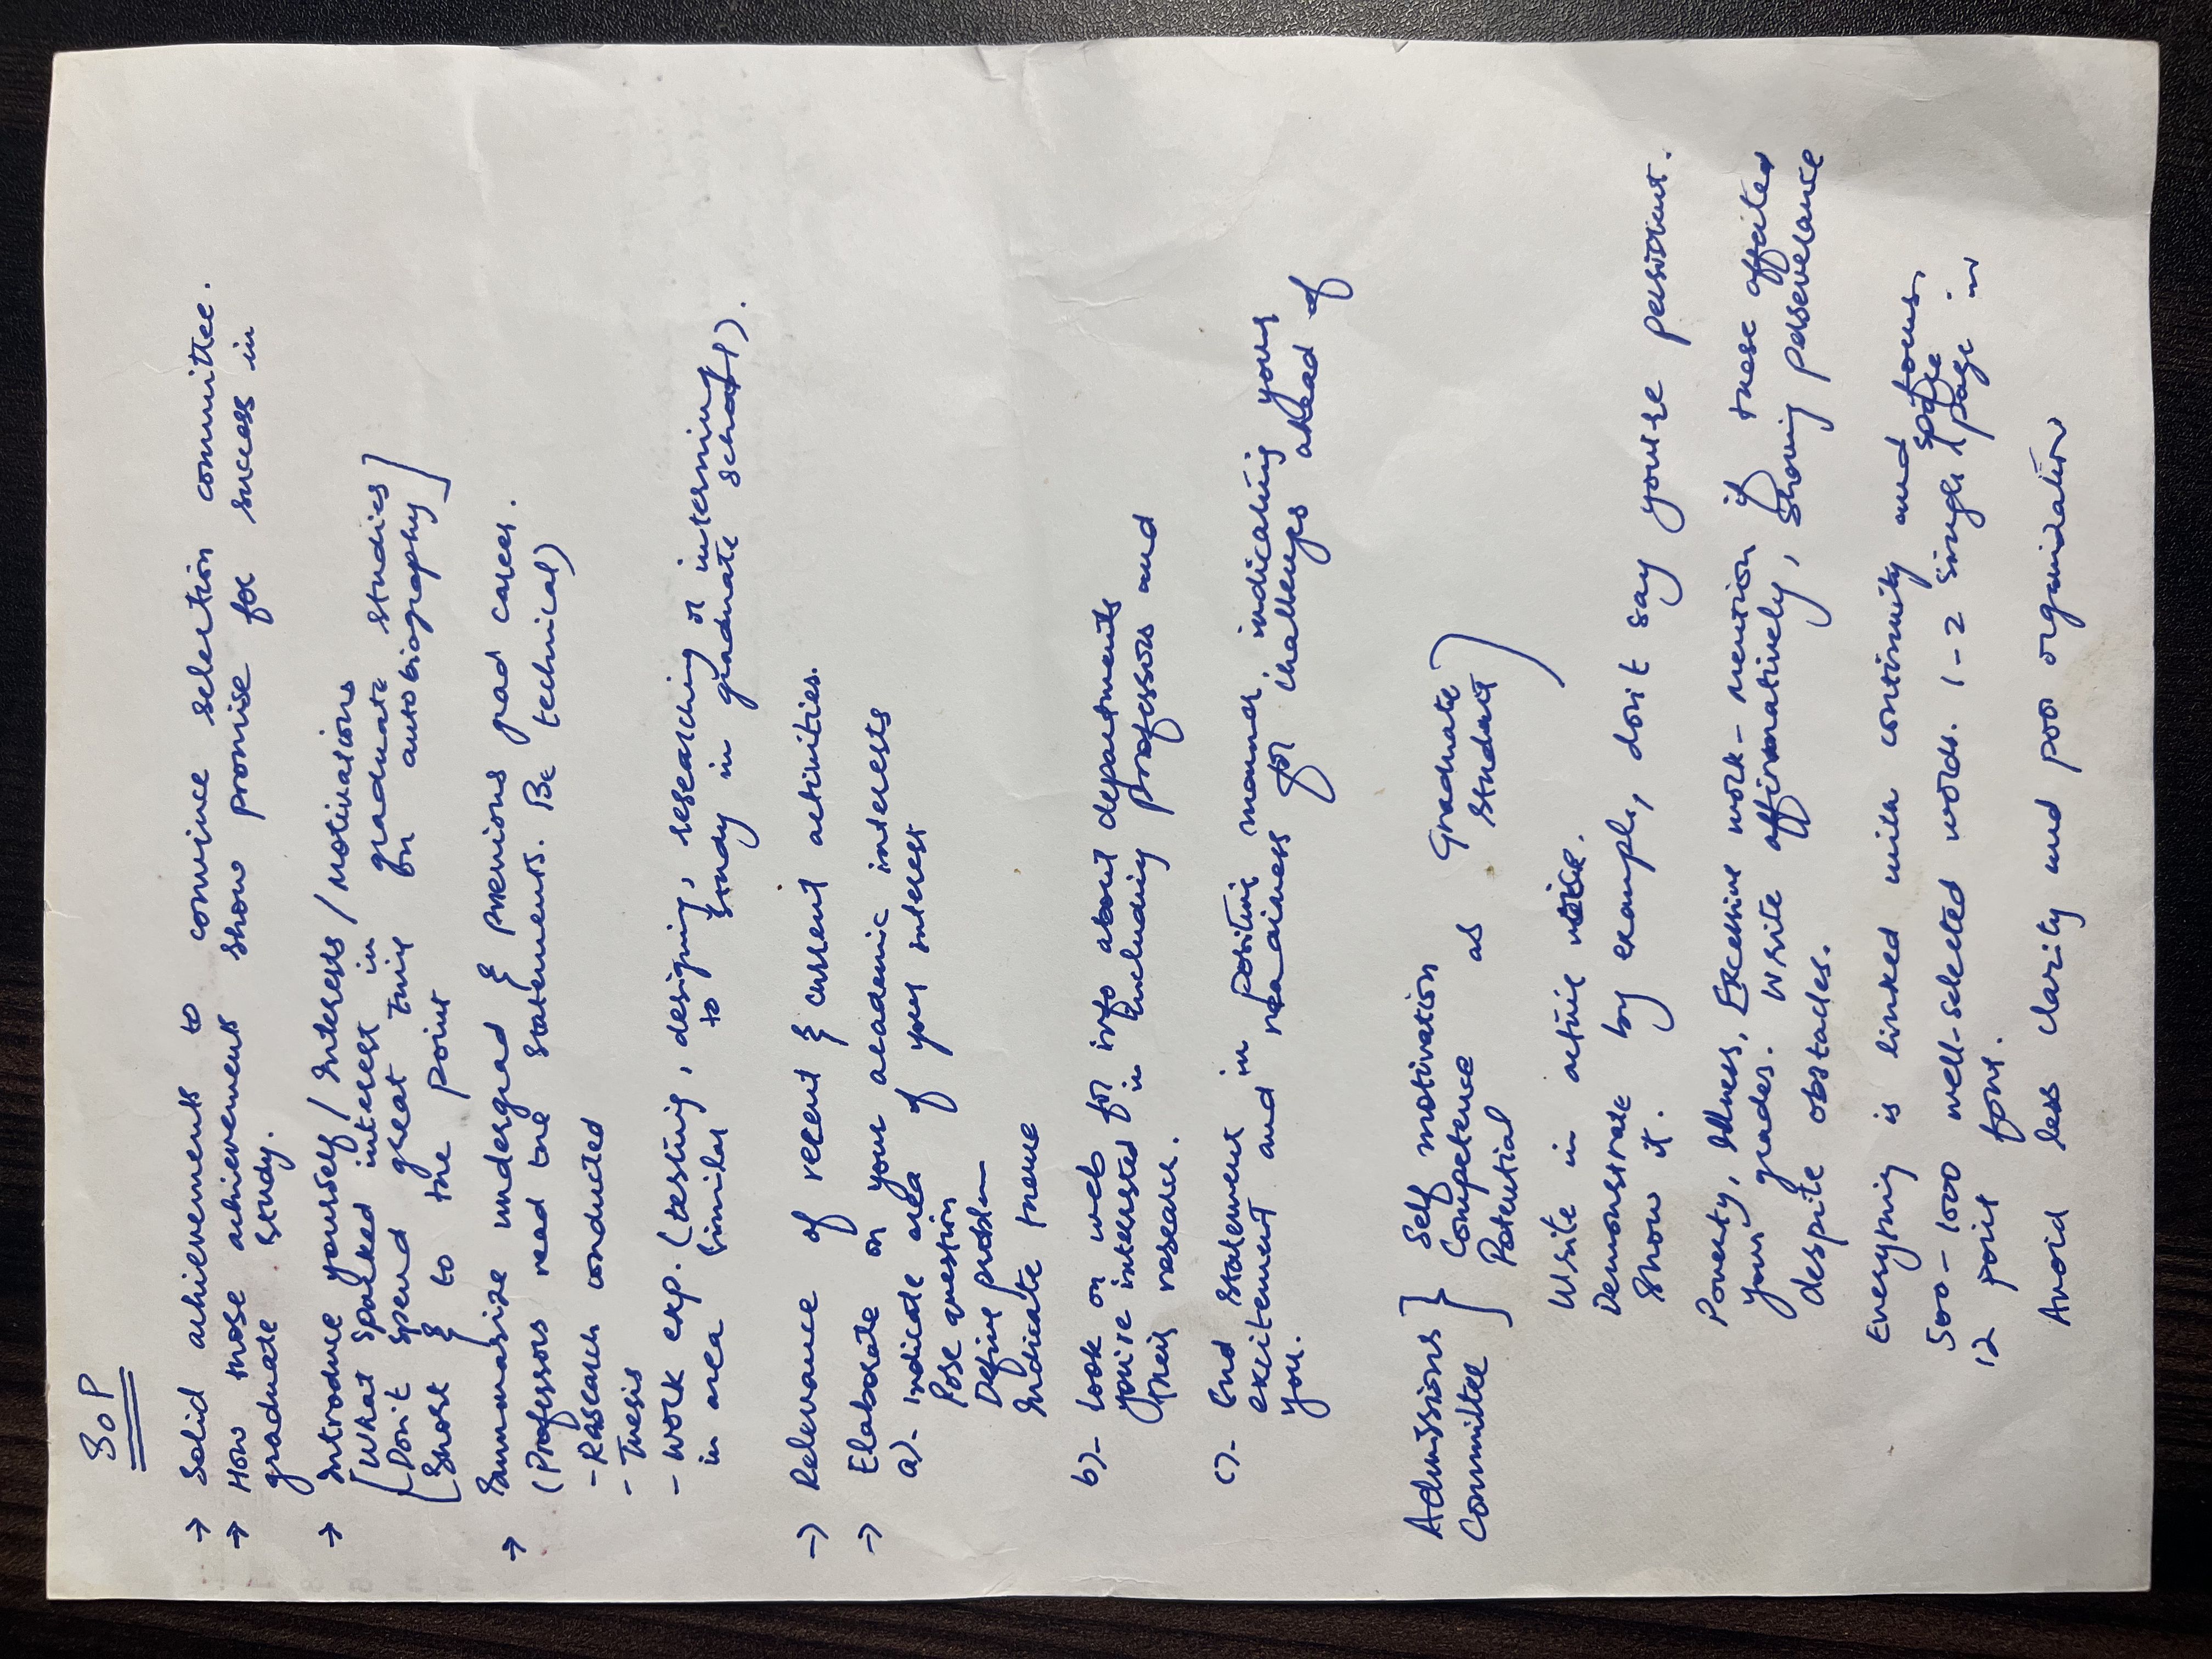 SOP
→ Solid achievements to convince selection committee.
→ How those achievements show promise for success in
graduate study.
→ Introduce yourself / Interests / Motivations
[What sparked interest in graduate studies]
[Don't spend great time on autobiography]
[Short & to the point
→ Summarize undergrad & previous grad career.
(Professors need the statements. Be technical)
- Research conducted
- Thesis
- Work exp. (testing, designing, researching or interning
in area similar to study in graduate school).
→ Relevance of recent & current activities.
→ Elaborate on your academic interests
a)- Indicate area of your interest
Pose question
Define problem
Indicate theme
b)- Look on web for info about departments
you're interested in including professors and
their research.
c)- End statement in positive manner indicating your
excitement and readiness for challenges ahead of
you.
Admissions } Self motivation
Committee } Competence as Graduate
Potential student )
Write in active voice.
Demonstrate by example, don't say you're persistent.
Show it.
Poverty, Illness, Excessive work - mention if these affected
your grades. Write affirmatively, showing perseverance
despite obstacles.
Everything is linked with continuity and focus.
500-1000 well-selected words. 1-2 single space page in
12 point font.
Avoid less clarity and poor organization